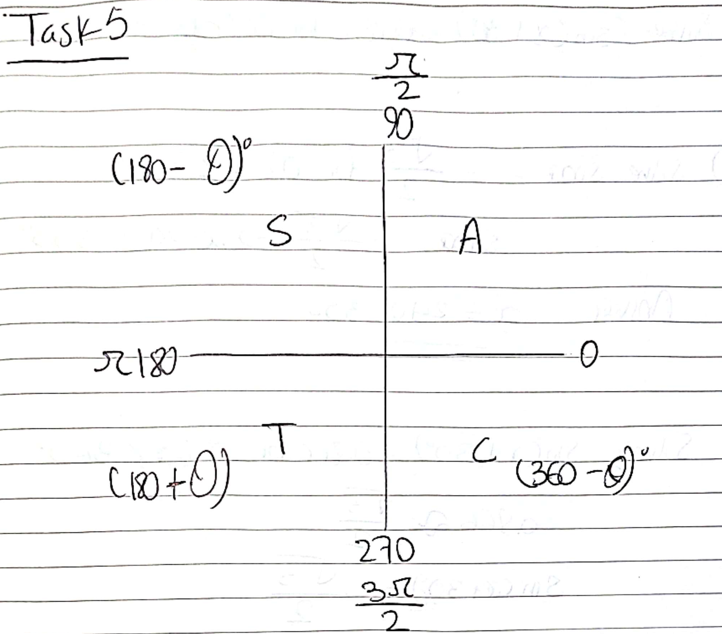 Task 5
π/2
90
(180 - θ)°
S A
π 180 0
T C
(180 + θ) (360 - θ)°
270
3π/2